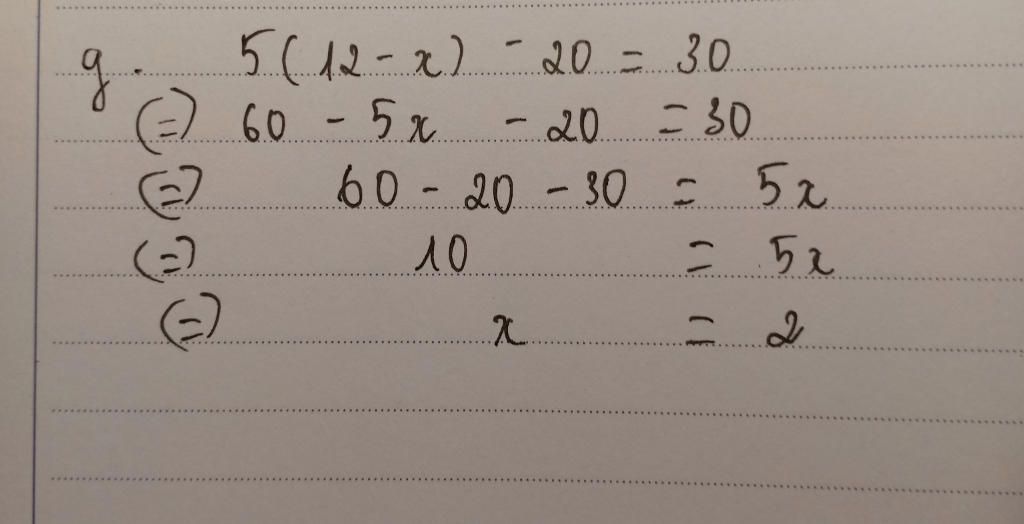 g. 5(12 - x) - 20 = 30
(=) 60 - 5x - 20 = 30
(=) 60 - 20 - 30 = 5x
(=) 10 = 5x
(=) x = 2